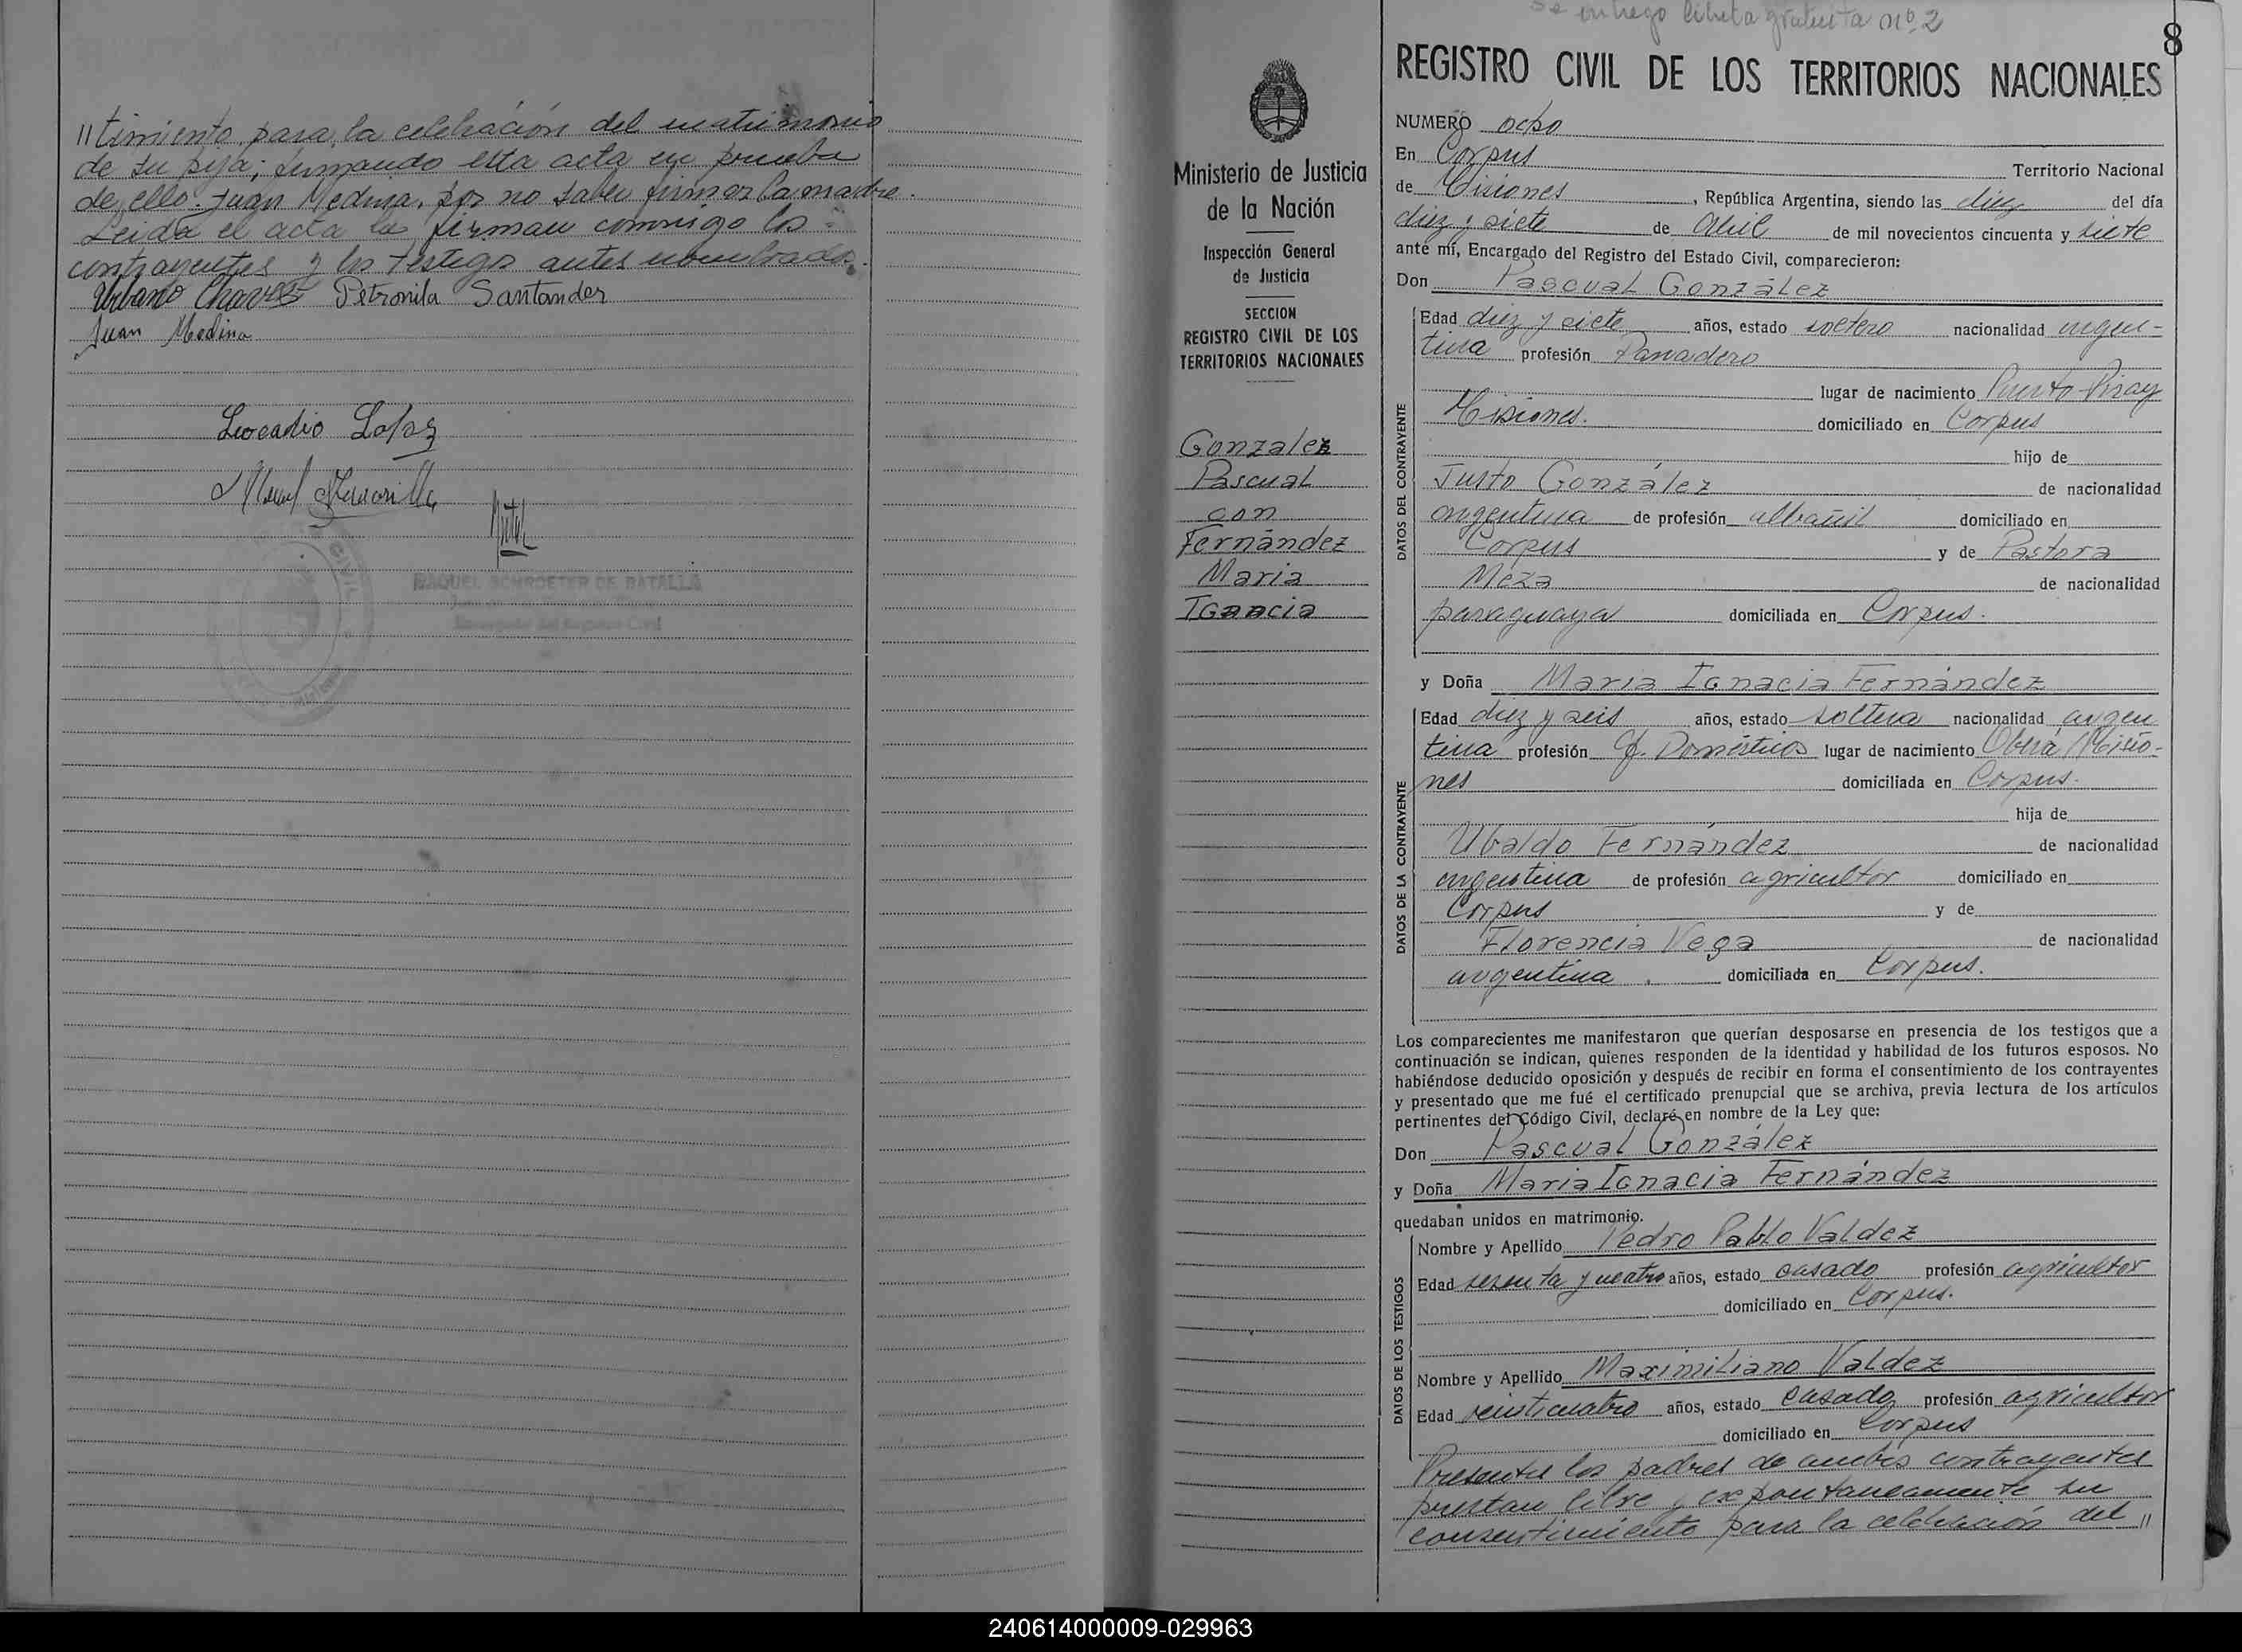 //timiento para la celebración del matrimonio
de su hija; firmando esta acta en prueba
de ello Juan Medina, por no saber firmar la madre.
Leida el acta la firman conmigo los
contrayentes y los testigos antes nombrados.
Urbano Chavez Petronila Santander
Juan Medina
Leocadio Lopez
RAQUEL SCHROETER DE BATALLA
Encargada del Registro Civil
Se entrego libreta gratuita Nº 2
8
REGISTRO CIVIL DE LOS TERRITORIOS NACIONALES
Ministerio de Justicia
de la Nación
Inspección General
de Justicia
SECCION
REGISTRO CIVIL DE LOS
TERRITORIOS NACIONALES
Gonzalez
Pascual
con
Fernández
Maria
Ignacia
NUMERO ocho
En Corpus Territorio Nacional
de Misiones, República Argentina, siendo las diez del día
diez y siete de Abril de mil novecientos cincuenta y siete
ante mí, Encargado del Registro del Estado Civil, comparecieron:
Don Pascual González
DATOS DEL CONTRAYENTE
Edad diez y siete años, estado soltero nacionalidad argen-
tina profesión Panadero
lugar de nacimiento Puerto Piray
Misiones. domiciliado en Corpus
hijo de
Justo González de nacionalidad
argentina de profesión albañil domiciliado en
Corpus y de Pastora
Meza de nacionalidad
paraguaya domiciliada en Corpus.
y Doña Maria Ignacia Fernández
DATOS DE LA CONTRAYENTE
Edad diez y seis años, estado soltera nacionalidad argen
tina profesión Q. Domésticos lugar de nacimiento Oberá Misio-
nes domiciliada en Corpus.
hija de
Ubaldo Fernández de nacionalidad
argentina de profesión agricultor domiciliado en
Corpus y de
Florencia Vega de nacionalidad
argentina. domiciliada en Corpus.
Los comparecientes me manifestaron que querían desposarse en presencia de los testigos que a
continuación se indican, quienes responden de la identidad y habilidad de los futuros esposos. No
habiéndose deducido oposición y después de recibir en forma el consentimiento de los contrayentes
y presentado que me fué el certificado prenupcial que se archiva, previa lectura de los artículos
pertinentes del Código Civil, declaré en nombre de la Ley que:
Don Pascual González
y Doña Maria Ignacia Fernández
quedaban unidos en matrimonio.
DATOS DE LOS TESTIGOS
Nombre y Apellido Pedro Pablo Valdez
Edad sesenta y cuatro años, estado casado profesión agricultor
domiciliado en Corpus.
Nombre y Apellido Maximiliano Valdez
Edad veinticuatro años, estado casado profesión agricultor
domiciliado en Corpus
Presentes los padres de ambos contrayentes
prestan libre y expontaneamente su
consentimiento para la celebración del //
240614000009-029963